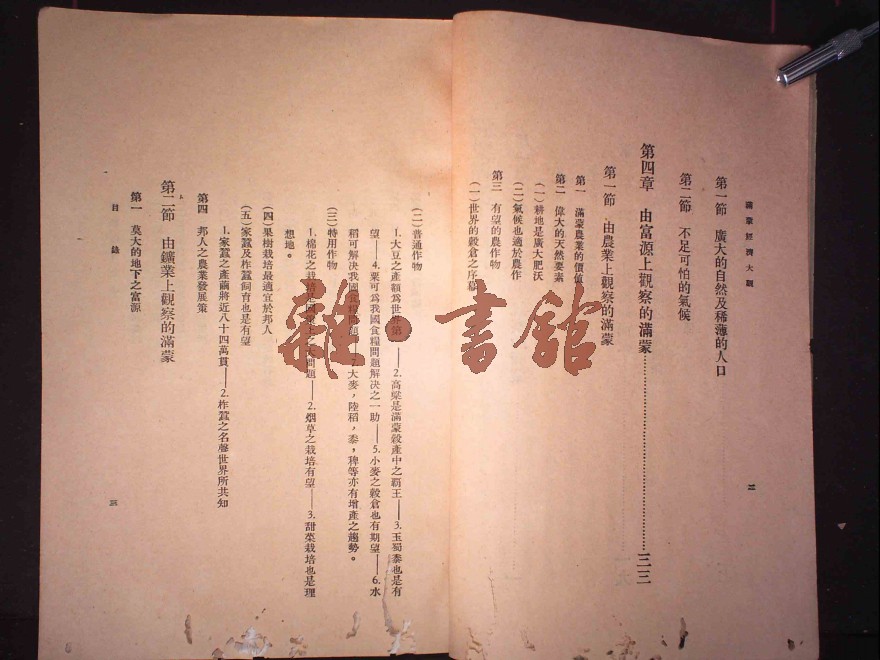 滿蒙經濟大觀
二
第一節　廣大的自然及稀薄的人口
第二節　不足可怕的氣候
第四章　由富源上觀察的滿蒙……三三
第一節　由農業上觀察的滿蒙
第一　滿蒙農業的價值
第二　偉大的天然要素
(一)耕地是廣大肥沃
(二)氣候也適於農作
第三　有望的農作物
(一)世界的穀倉之序幕
(二)普通作物
1.大豆之產額爲世界第一——2.高粱是滿蒙穀產中之覇王——3.玉蜀黍也是有
望——4.粟可爲我國食糧問題解决之一助——5.小麥之穀倉也有期望——6.水
稻可解决我國食糧問題 7.大麥，陸稻，黍，稗等亦有增產之趨勢。
(三)特用作物
1.棉花之栽培 問題——2.烟草之栽培有望——3.甜菜栽培也是理
想地。
(四)果樹栽培最適宜於邦人
(五)家蠶及柞蠶飼育也是有望
1.家蠶之產繭將近八十四萬貫——2.柞蠶之名聲世界所共知
第四　邦人之農業發展策
第二節　由鑛業上觀察的滿蒙
第一　莫大的地下之富源
目錄
三
雜·書館